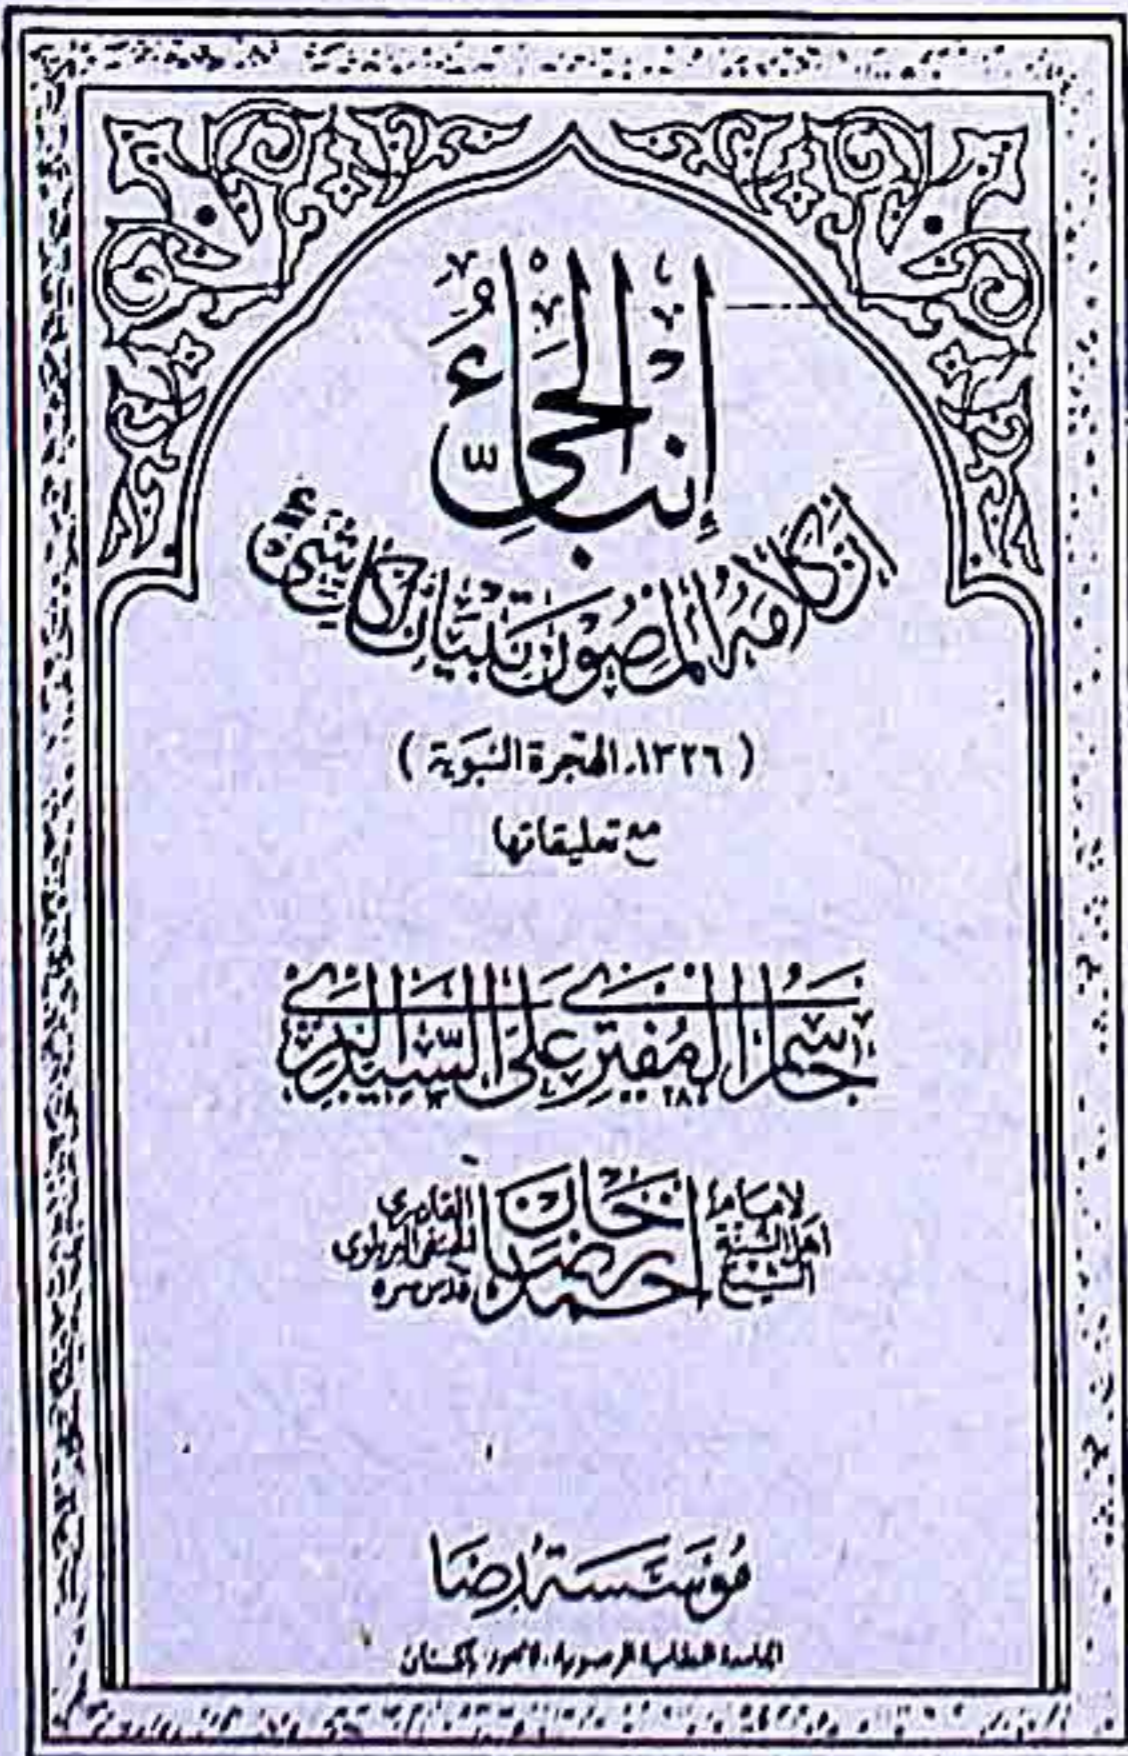 إنباء الحيّ
إن كلامه المصون تبيان لكل شيء
(١٣٢٦ الهجرة النبوية)
مع تعليقاتها
حاسم المفتري على السيد البري
لإمام أهل السنة الشيخ أحمد رضا خان القادري الحنفي البريلوي قدس سره
مؤسسة رضا
الجامعة النظامية الرضوية، لاهور باكستان